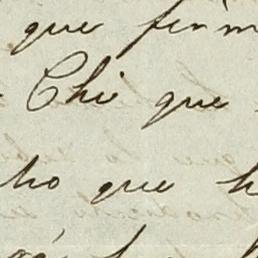 que firm
Chi que
ho que h